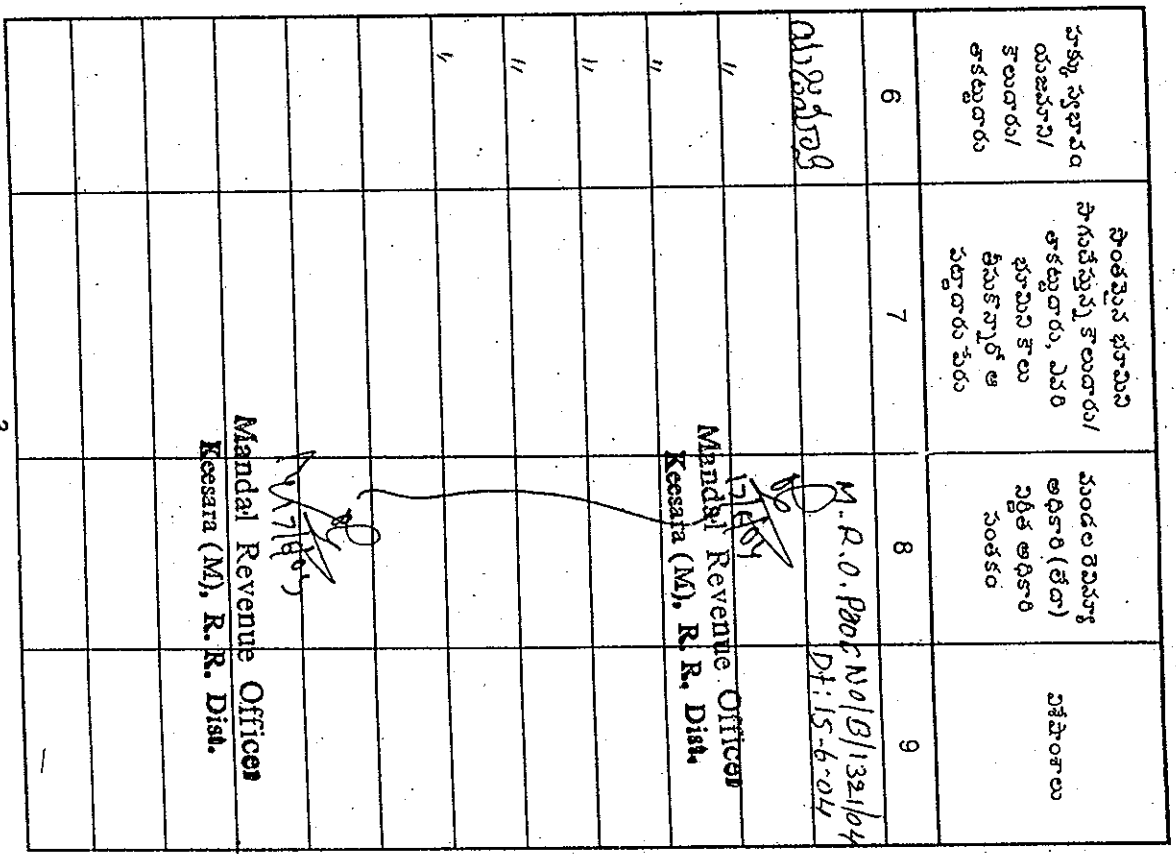 హక్కు స్వభావం
యజమాని/
కౌలుదారు/
తాకట్టుదారు
సొంతమైన భూమిని
సాగుచేస్తున్న కౌలుదారు/
తాకట్టుదారు, ఎవరి
భూమిని కౌలు
తీసుకొన్నారో ఆ
పట్టాదారు పేరు
మండల రెవిన్యూ
అధికారి (లేదా)
నిర్ణీత అధికారి
సంతకం
విశేషాంశాలు
6
7
8
9
యజమాని
M.R.O. Proc No/B/1321/04
Dt: 15-6-04
"
17/8/04
Mandal Revenue Officer
Keesara (M), R. R. Dist.
"
"
"
"
17/8/04
Mandal Revenue Officer
Keesara (M), R. R. Dist.